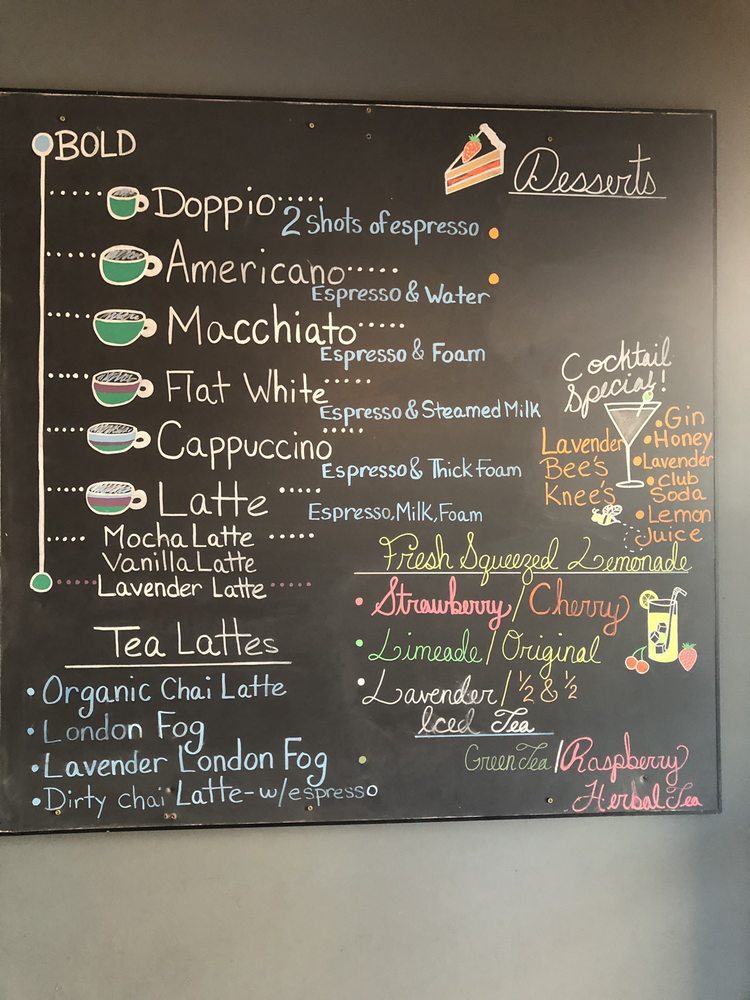 BOLD
Doppio
2 Shots of espresso
Americano
Espresso & Water
Macchiato
Espresso & Foam
Flat White
Espresso & Steamed Milk
Cappuccino
Espresso & Thick Foam
Latte
Espresso, Milk, Foam
Mocha Latte
Vanilla Latte
Lavender Latte
Tea Lattes
• Organic Chai Latte
• London Fog
• Lavender London Fog
• Dirty chai Latte-w/espresso
Desserts
Cocktail
Special!
Lavender
Bee's
Knee's
• Gin
• Honey
• Lavender
• club
Soda
• Lemon
Juice
Fresh Squeezed Lemonade
• Strawberry/Cherry
• Limeade/Original
• Lavender/½ & ½
Iced Tea
Green Tea/Raspberry
Herbal Tea